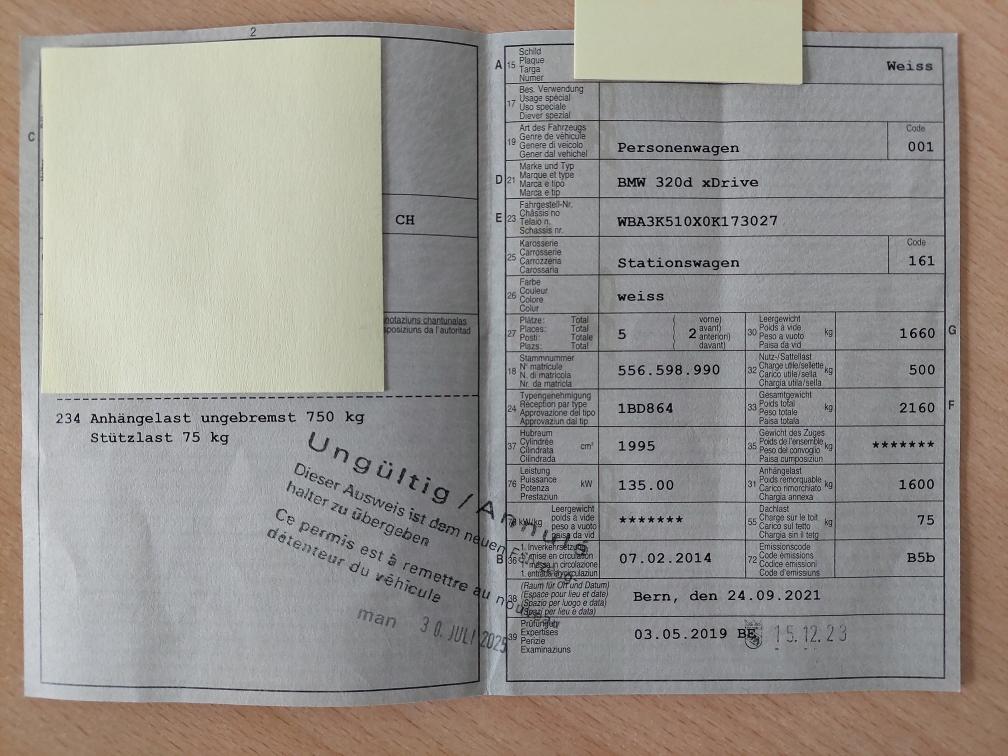 2
C
CH
notaziuns chantunalas
sposiziuns da l'autoritad
234 Anhängelast ungebremst 750 kg
Stützlast 75 kg
Ungültig / Annulé
Dieser Ausweis ist dem neuen
halter zu übergeben
Ce permis est à remettre au nouveau
détenteur du véhicule
man 30. JULI 2025
A 15 Schild
Plaque
Targa
Numer
Weiss
17 Bes. Verwendung
Usage spécial
Uso speciale
Diever spezial
19 Art des Fahrzeugs
Genre de véhicule
Genere di veicolo
Gener dal vehichel
Personenwagen
Code
001
D 21 Marke und Typ
Marque et type
Marca e tipo
Marca e tip
BMW 320d xDrive
E 23 Fahrgestell-Nr.
Châssis no
Telaio n.
Schassis nr.
WBA3K510X0K173027
25 Karosserie
Carrosserie
Carrozzeria
Carossaria
Stationswagen
Code
161
26 Farbe
Couleur
Colore
Colur
weiss
27 Plätze: Total
Places: Total
Posti: Totale
Plazs: Total
5 ( 2 vorne)
( avant)
( anterion)
( davant)
30 Leergewicht
Poids à vide
Peso a vuoto
Paisa da vid
kg 1660 G
18 Stammnummer
N° matricule
N. di matricola
Nr. da matricla
556.598.990
32 Nutz-/Sattellast
Charge utile/sellette
Carico utile/sella
Chargia utila/sella
kg 500
24 Typengenehmigung
Réception par type
Approvazione del tipo
Approvaziun dal tip
1BD864
33 Gesamtgewicht
Poids total
Peso totale
Paisa totala
kg 2160 F
37 Hubraum
Cylindrée
Cilindrata
Cilindrada
cm³ 1995
35 Gewicht des Zuges
Poids de l'ensemble
Peso del convoglio
Paisa cumposiziun
kg *******
76 Leistung
Puissance
Potenza
Prestaziun
kW 135.00
31 Anhängelast
Poids remorquable
Carico rimorchiato
Chargia annexa
kg 1600
78 kW/kg Leergewicht
poids à vide
peso a vuoto
paisa da vid
*******
55 Dachlast
Charge sur le toit
Carico sul tetto
Chargia sin il tetg
kg 75
B 36 1. Inverkehrsetzung
1re mise en circulation
1a messa in circolazione
1. entrada en circulaziun
07.02.2014
72 Emissionscode
Code émissions
Codice emissioni
Code d'emissiuns
B5b
38 (Raum für Ort und Datum)
(Espace pour lieu et date)
(Spazio per luogo e data)
(Spazi per lieu e data)
Bern, den 24.09.2021
39 Prüfungen
Expertises
Perizie
Examinaziuns
03.05.2019 BE 15.12.23